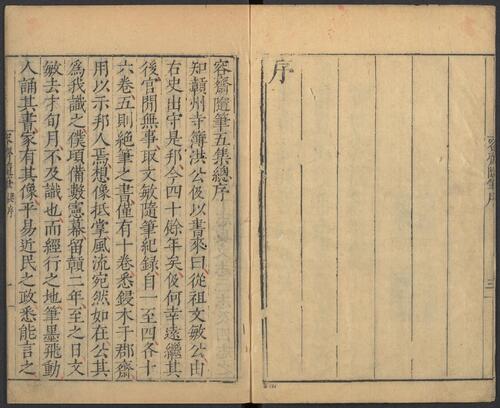 容齋隨筆序
三
序
容齋隨筆五集總序
知贛州寺簿洪公伋以書來曰從祖文敏公由
右史出守是邦今四十餘年矣伋何幸遠繼其
後官閒無事取文敏隨筆紀錄自一至四各十
六卷五則絕筆之書僅有十卷悉鋟木于郡齋
用以示邦人焉想像抵掌風流宛然如在公其
爲我識之僕頃備數憲幕留贛二年至之日文
敏去才旬月不及識也而經行之地筆墨飛動
人誦其書家有其像平易近民之政悉能言之